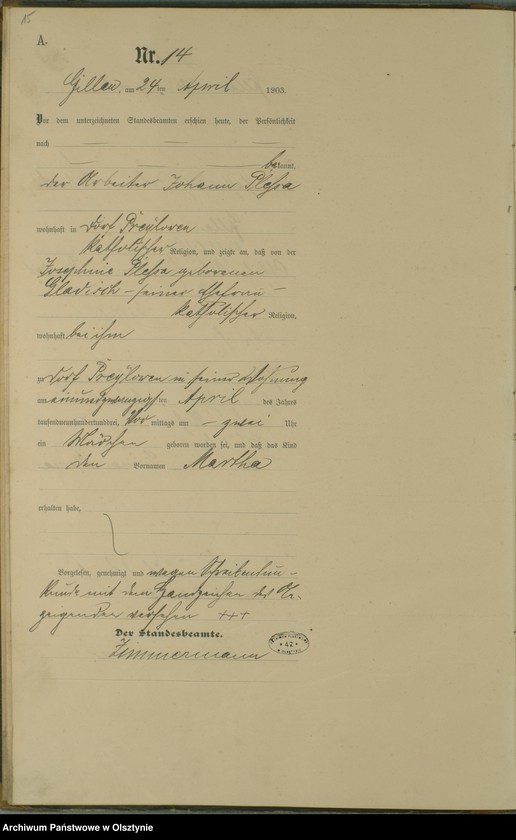 A.
Nr. 14
Gillau, am 24ten April 1903.
Vor dem unterzeichneten Standesbeamten erschien heute, der Persönlichkeit
nach
bekannt,
der Arbeiter Johann Plessa
wohnhaft in Dorf Preylowen
katholischer Religion, und zeigte an, daß von der
Josephine Plessa geborenen
Gladisch – seiner Ehefrau –
katholischer Religion,
wohnhaft bei ihm
zu Dorf Preylowen in seiner Wohnung
am einundzwanzigsten April des Jahres
tausendneunhundertdrei, Vor mittags um – zwei Uhr
ein Mädchen geboren worden sei, und daß das Kind
den Vornamen Martha
erhalten habe,
Vorgelesen, genehmigt und wegen Schreibensun-
kunde mit den Handzeichen des An-
zeigenden versehen +++
Der Standesbeamte.
Zimmermann
Archiwum Państwowe w Olsztynie